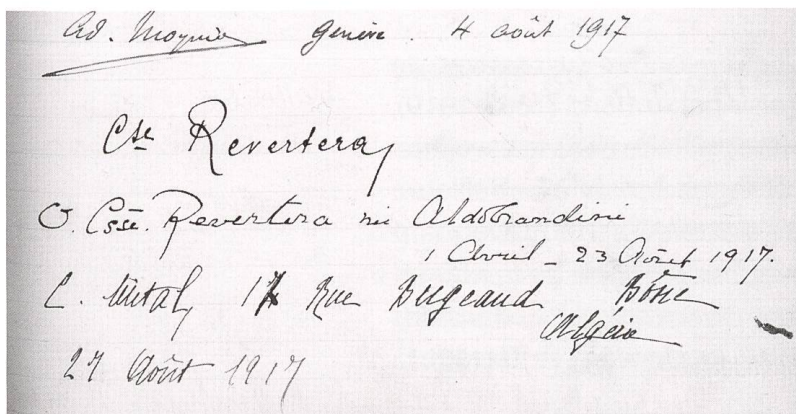 Ad. Moynier Genève . 4 août 1917
Cse Revertera
O. Csse. Revertera née Aldobrandini
1 Avril - 23 Août 1917.
17 Rue Bugeaud Bône
Algérie
27 Août 1917